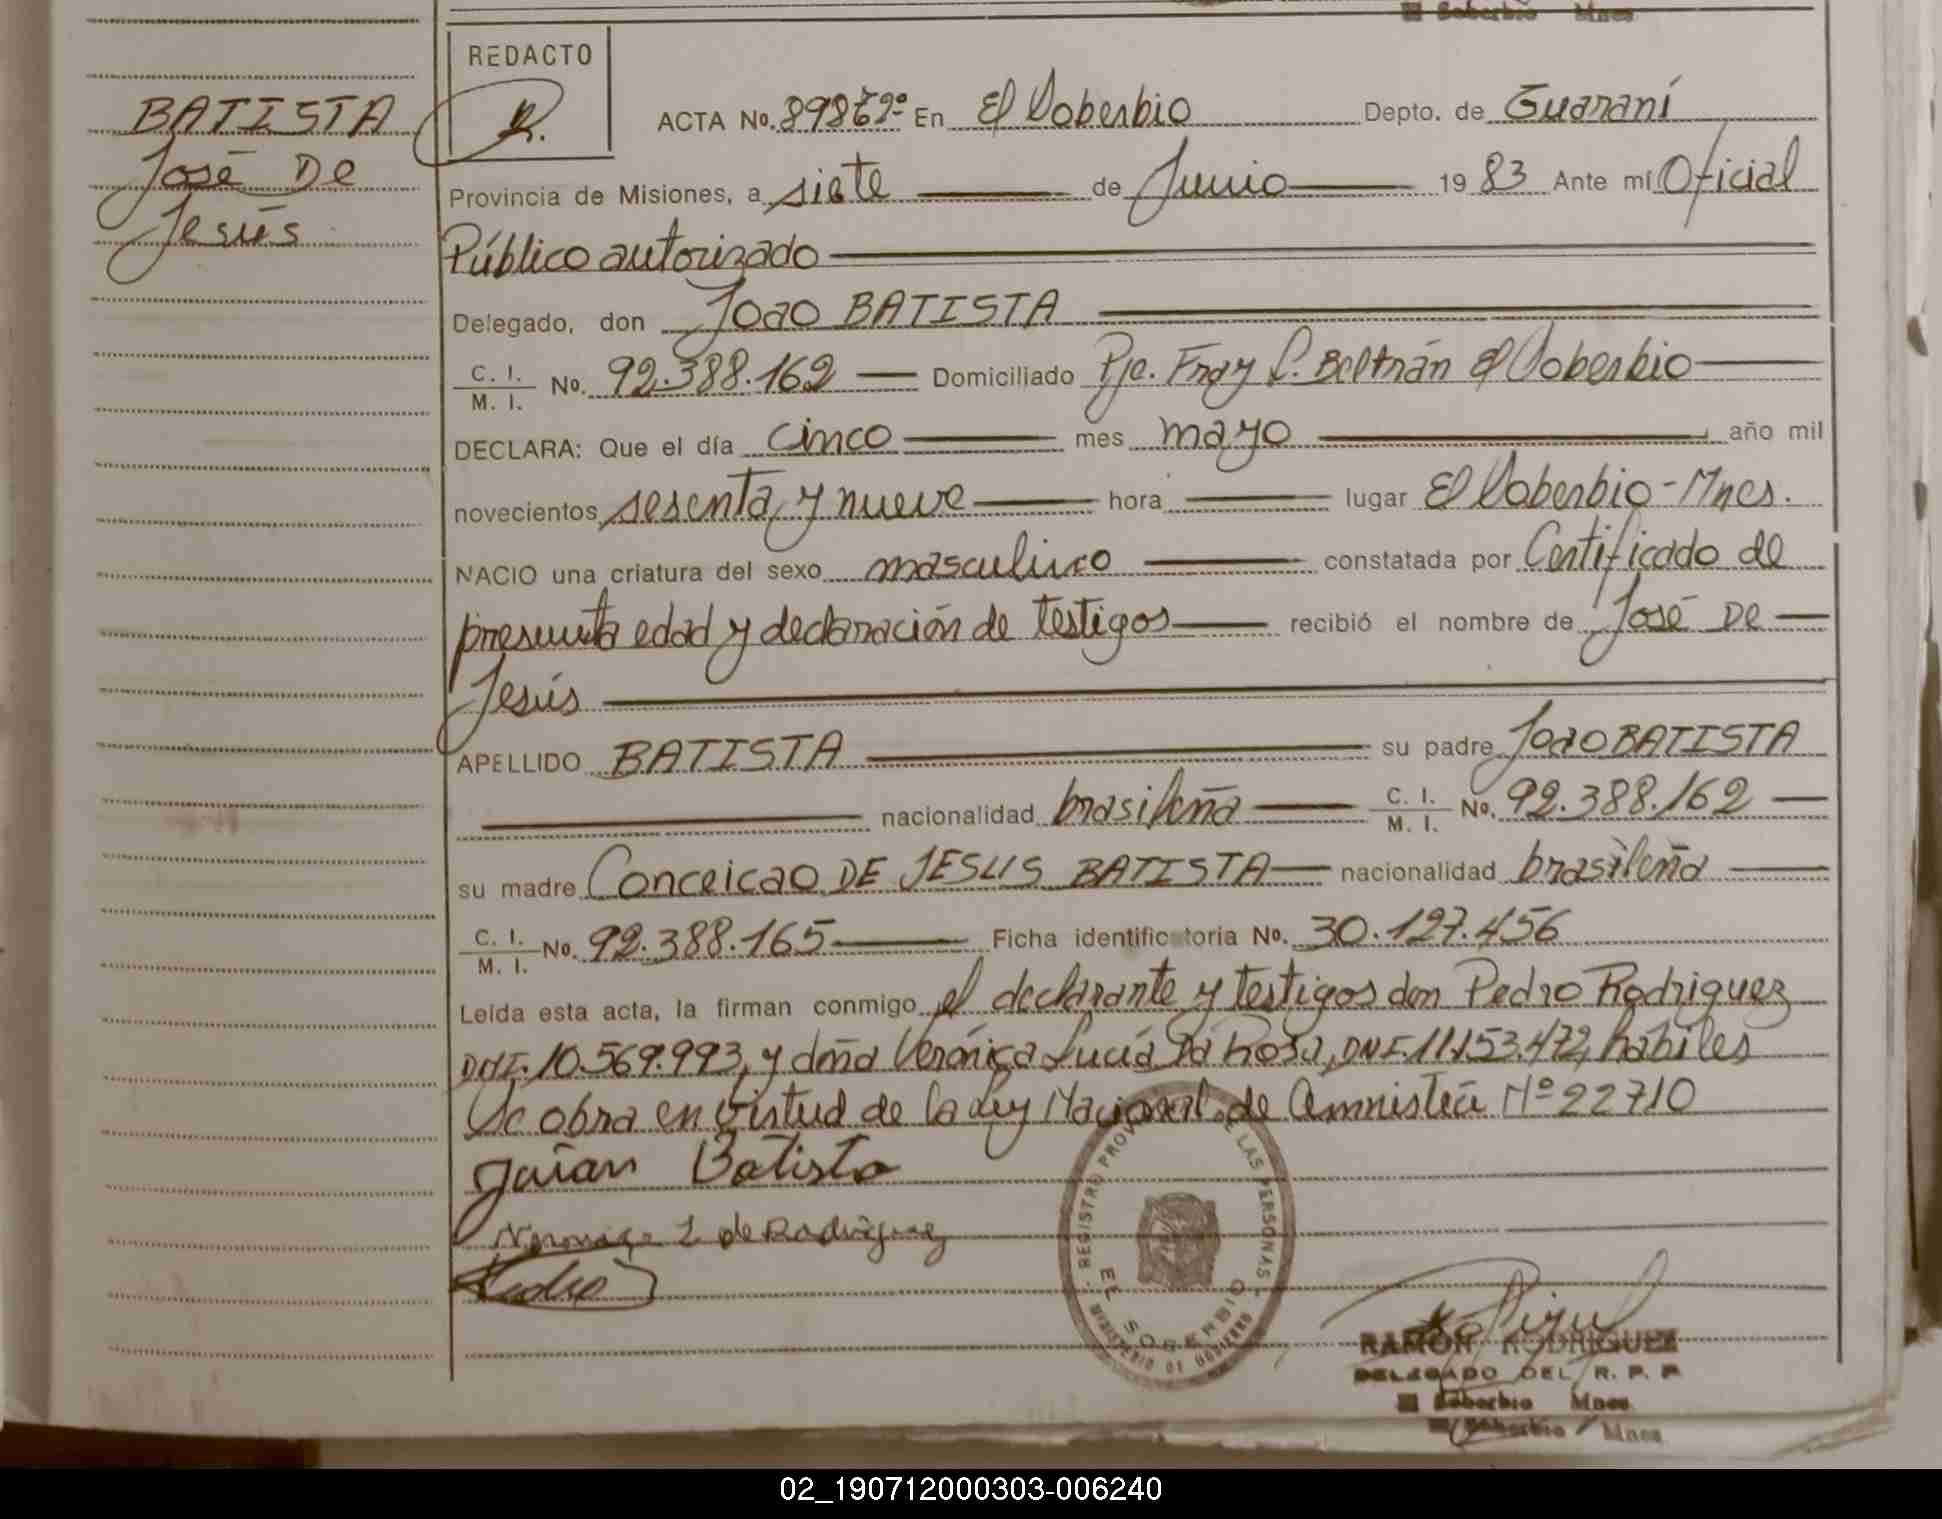 El Soberbio Mnes
REDACTO
R.
BATISTA
José De
Jesús
ACTA No. 89867º En El Soberbio Depto. de Guaraní
Provincia de Misiones, a siete de Junio 19 83 Ante mí Oficial
Público autorizado
Delegado, don Joao BATISTA
C. I. M. I. No. 92.388.162 Domiciliado Pje. Fray L. Beltrán El Soberbio
DECLARA: Que el día cinco mes mayo año mil
novecientos sesenta y nueve hora lugar El Soberbio - Mnes.
NACIO una criatura del sexo masculino constatada por Certificado de
presunta edad y declaración de testigos recibió el nombre de José De
Jesús
APELLIDO BATISTA su padre Joao BATISTA
nacionalidad brasileña C. I. M. I. No. 92.388.162
su madre Conceicao DE JESUS BATISTA nacionalidad brasileña
C. I. M. I. No. 92.388.165 Ficha identificatoria No. 30.127.456
Leída esta acta, la firman conmigo el declarante y testigos don Pedro Rodriguez
DNI. 10.569.993, y doña Verónica Lucía Da Rosa, DNI. 11.153.472, hábiles
Se obra en virtud de la Ley Nacional de Amnistía Nº 22710
Batista
L de Rodriguez
REGISTRO PROV DE LAS PERSONAS
EL SOBERBIO
MINISTERIO DE GOBIERNO
RAMON RODRIGUEZ
DELEGADO DEL R. P. P.
El Soberbio Mnes
El Soberbio Mnes
02_190712000303-006240